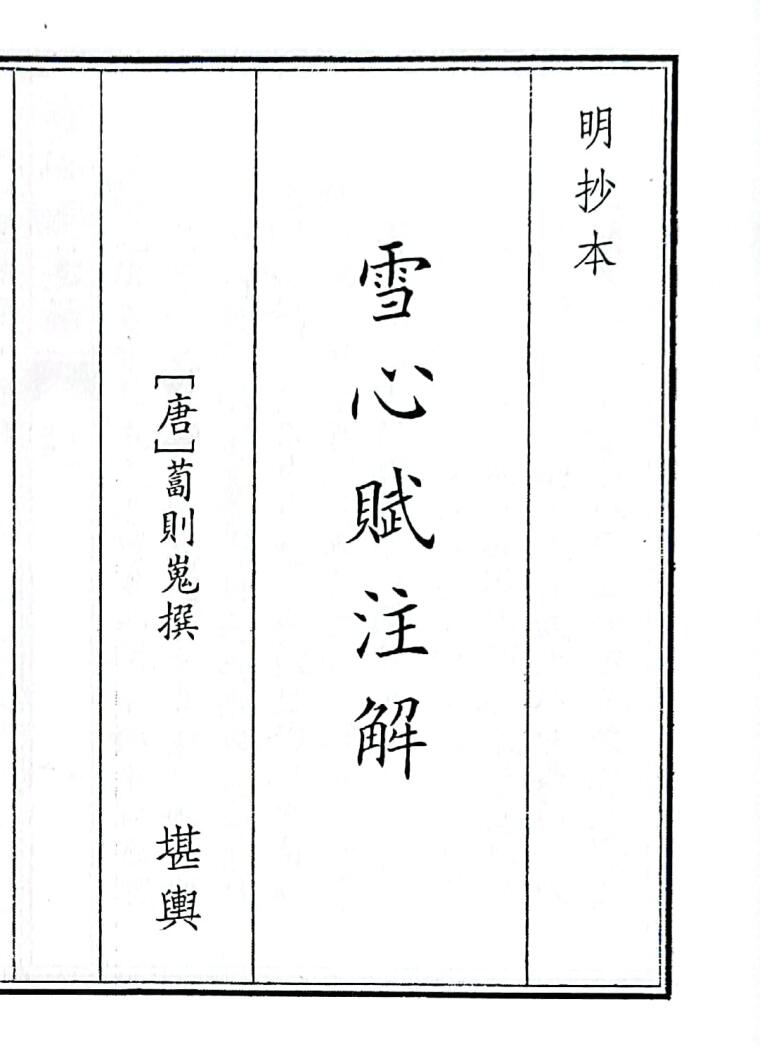 明抄本
雪心賦注解
[唐]蔔則嵬撰
堪輿